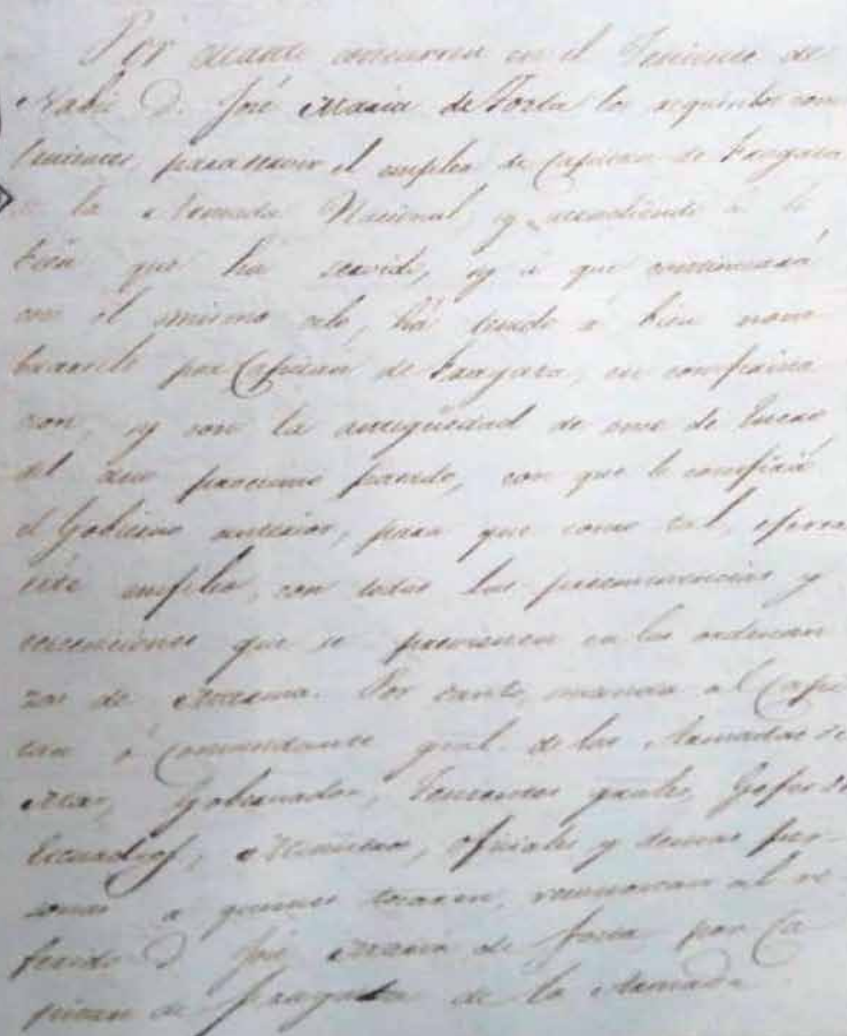 Por cuanto concurren en el Teniente de
Navio D. José Maria de Tosta los requisitos con
benientes para servir el empleo de Capitan de Fragata
de la Armada Nacional, y atendiendo á lo
bien que ha servido, y á que continuará
con el mismo celo, há tenido á bien nom
brarlo por Capitan de Fragata, en
con, y con la antigüedad de once de Enero
del año procsimo pasado, con que le confirió
el Gobierno anterior, para que como tal, ejersa
este empleo, con todas las preeminencias y
esenciones que se previenen en las ordenan
zas de Marina. Por tanto, manda al Capi
tan ó Comandante gral. de las Armadas de
Mar, Gobernador, Tenientes grales, Gefes de
Escuadras, Ministros, oficiales y demas per-
sonas á quienes tocaren, reconoscan al re-
ferido D. José Maria de Tosta, por Ca
pitan de Fragata de la Armada